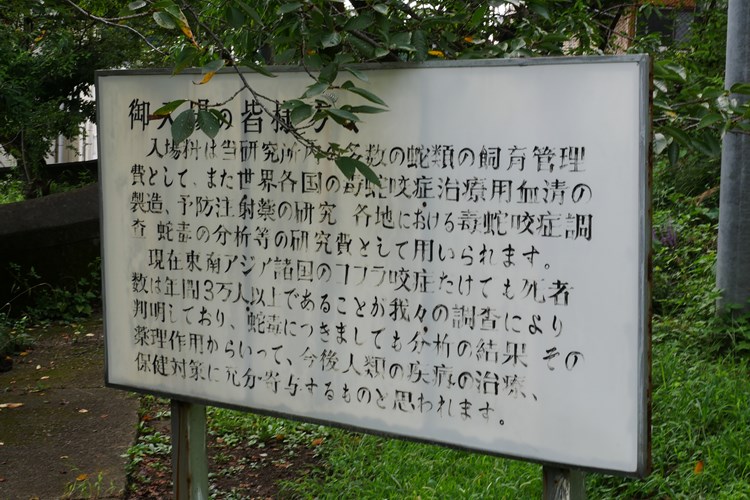 御入場の皆様方へ
入場料は当研究所内の多数の蛇類の飼育管理
費として、また世界各国の毒蛇咬症治療用血清の
製造、予防注射薬の研究 各地における毒蛇咬症調
査 蛇毒の分析等の研究費として用いられます。
現在東南アジア諸国のコブラ咬症だけでも死者
数は年間3万人以上であることが我々の調査により
判明しており、蛇毒につきましても分析の結果 その
薬理作用からいって、今後人類の疾病の治療、
保健対策に充分寄与するものと思われます。